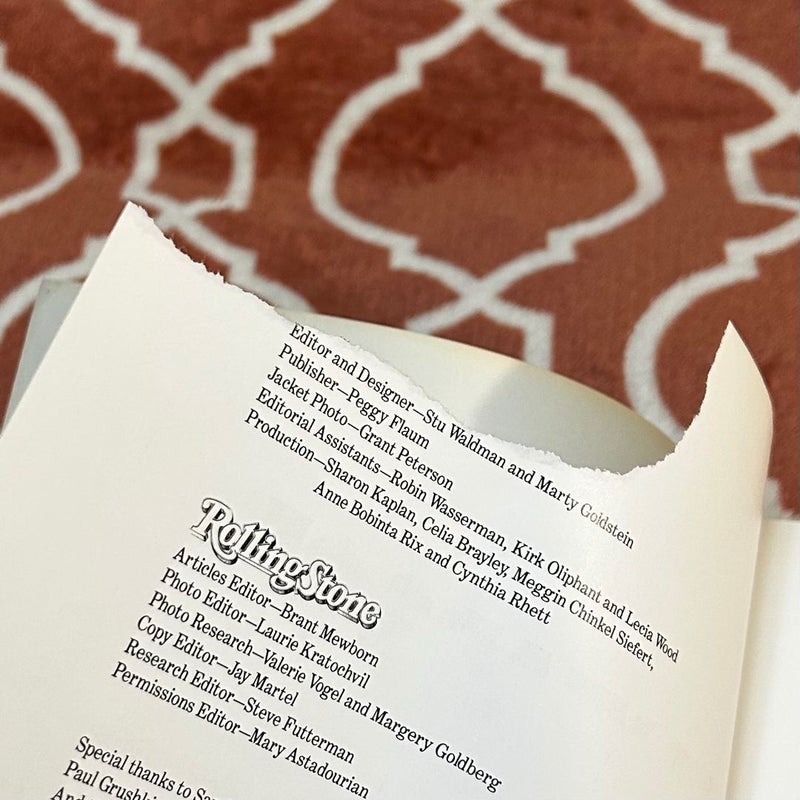 Editor and Designer—Stu Waldman and Marty Goldstein
Publisher—Peggy Flaum
Jacket Photo—Grant Peterson
Editorial Assistants—Robin Wasserman, Kirk Oliphant and Lecia Wood
Production—Sharon Kaplan, Celia Brayley, Meggin Chinkel Siefert,
Anne Bobinta Rix and Cynthia Rhett
RollingStone
Articles Editor—Brant Mewborn
Photo Editor—Laurie Kratochvil
Photo Research—Valerie Vogel and Margery Goldberg
Copy Editor—Jay Martel
Research Editor—Steve Futterman
Permissions Editor—Mary Astadourian
Special thanks to
Paul